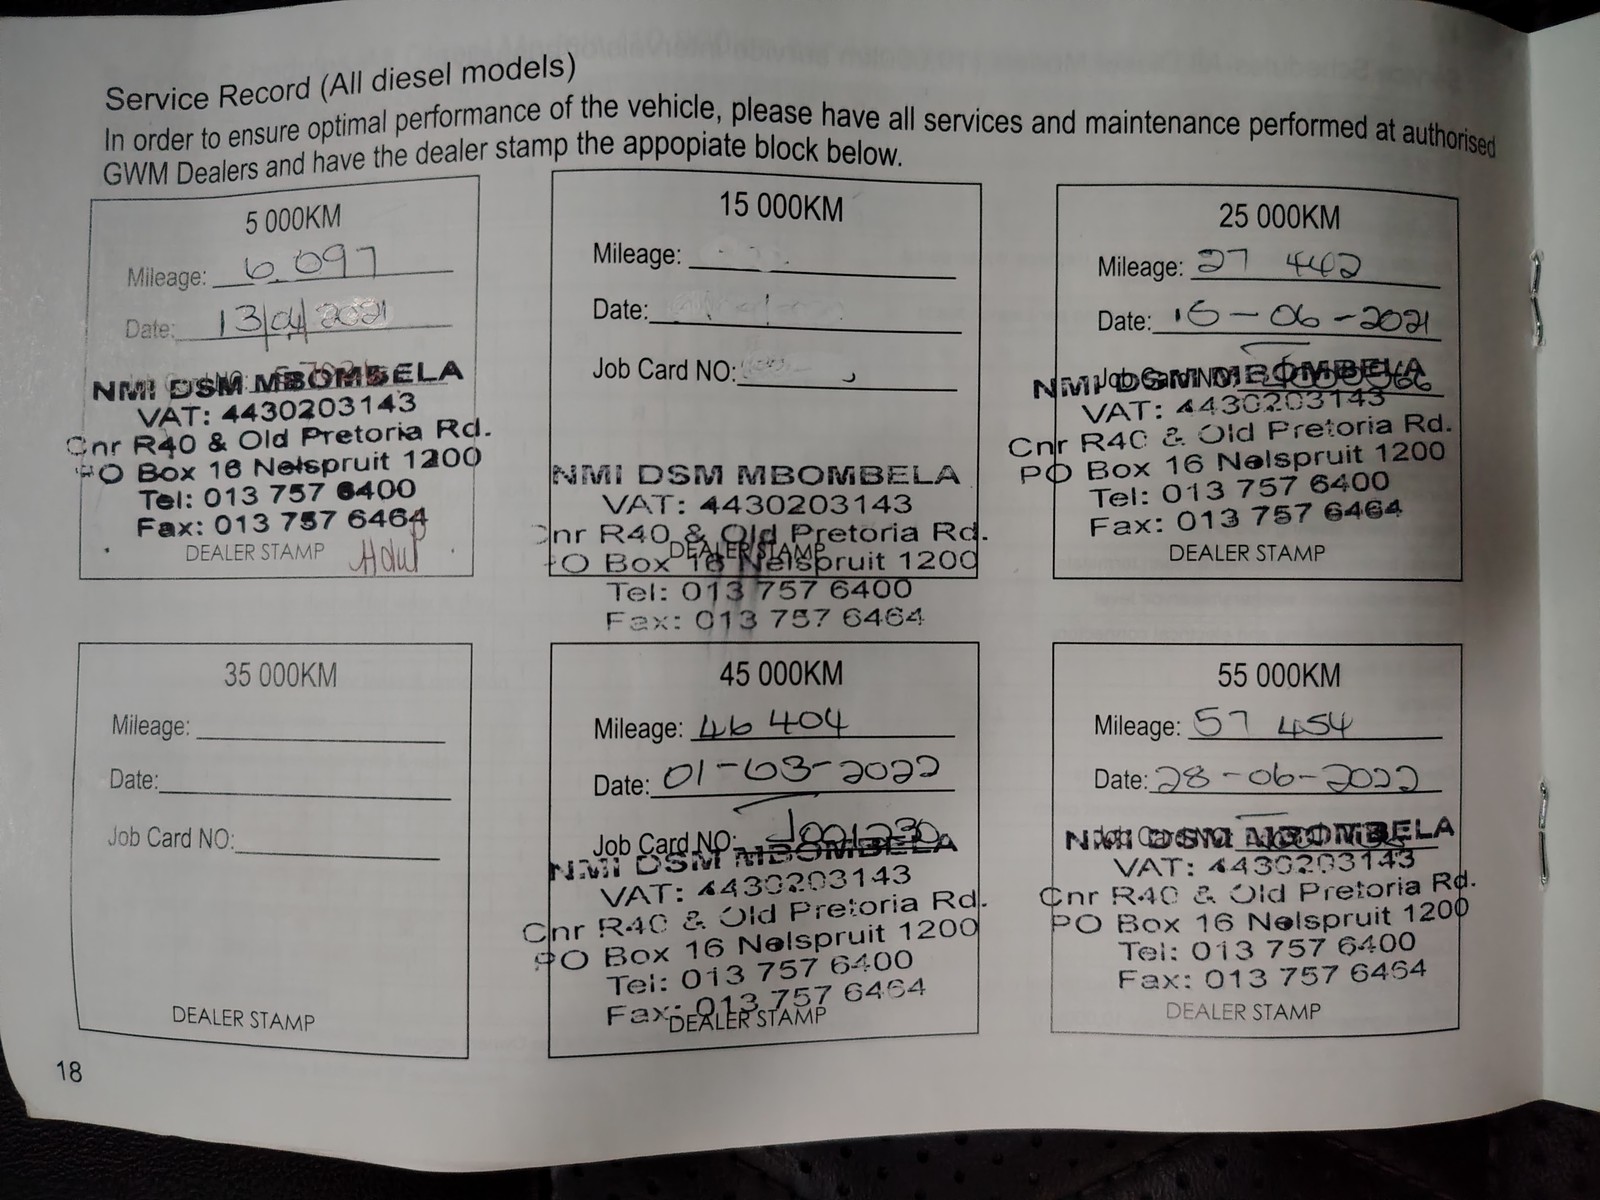 Service Record (All diesel models)
In order to ensure optimal performance of the vehicle, please have all services and maintenance performed at authorised
GWM Dealers and have the dealer stamp the appopiate block below.
5 000KM
Mileage: 6.097
Date: 13/04/2021
NMI DSM MBOMBELA
VAT: 4430203143
Cnr R40 & Old Pretoria Rd.
PO Box 16 Nelspruit 1200
Tel: 013 757 6400
Fax: 013 757 6464
DEALER STAMP
15 000KM
Mileage:
Date:
Job Card NO:
NMI DSM MBOMBELA
VAT: 4430203143
Cnr R40 & Old Pretoria Rd.
DEALER STAMP
PO Box 16 Nelspruit 1200
Tel: 013 757 6400
Fax: 013 757 6464
25 000KM
Mileage: 27 442
Date: 15-06-2021
Job Card NO:
NMI DSM MBOMBELA
VAT: 4430203143
Cnr R40 & Old Pretoria Rd.
PO Box 16 Nelspruit 1200
Tel: 013 757 6400
Fax: 013 757 6464
DEALER STAMP
35 000KM
Mileage:
Date:
Job Card NO:
DEALER STAMP
45 000KM
Mileage: 46 404
Date: 01-03-2022
Job Card NO: J001230
NMI DSM MBOMBELA
VAT: 4430203143
Cnr R40 & Old Pretoria Rd.
PO Box 16 Nelspruit 1200
Tel: 013 757 6400
Fax: 013 757 6464
DEALER STAMP
55 000KM
Mileage: 57 454
Date: 28-06-2022
Job Card NO:
NMI DSM MBOMBELA
VAT: 4430203143
Cnr R40 & Old Pretoria Rd.
PO Box 16 Nelspruit 1200
Tel: 013 757 6400
Fax: 013 757 6464
DEALER STAMP
18